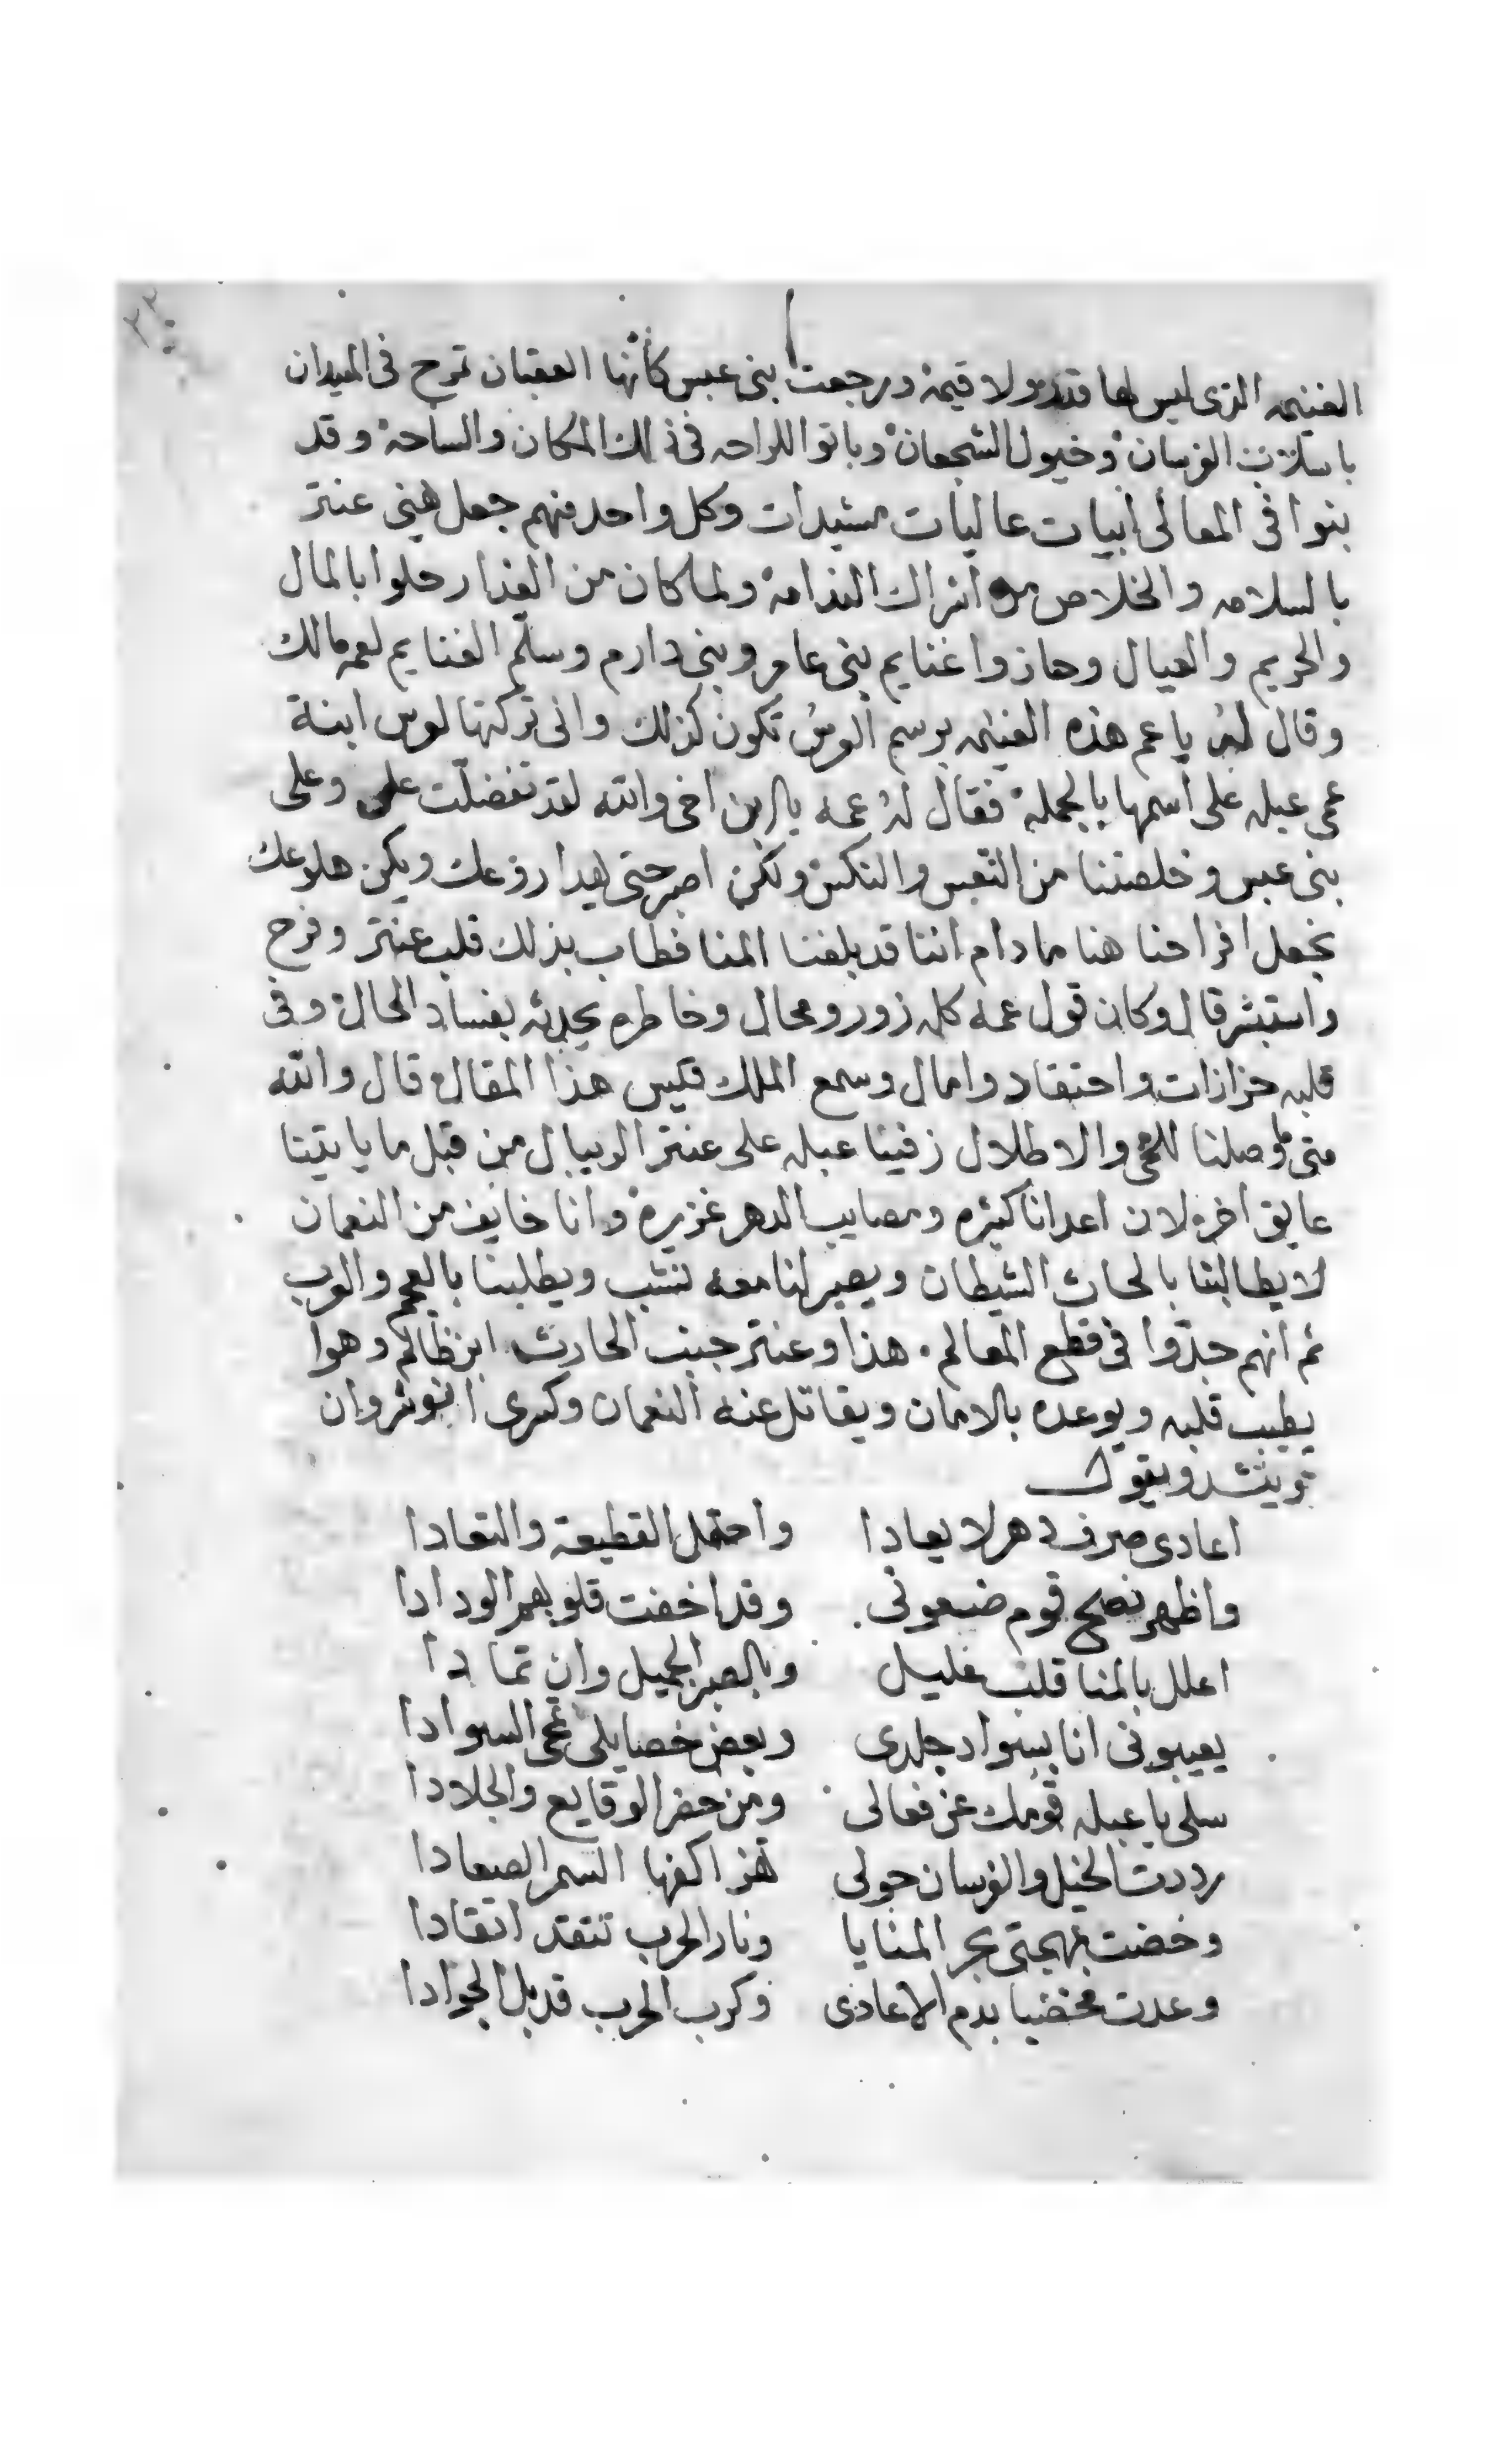 ٣٢
الغنيمه الذى ليس لها قدر ولا قيمة ورجعت بنى عبس كأنها العقبان تمرح فى الميدان
باسلاب الفرسان وخيول الشجعان وباتوا للراحه فى ذلك المكان والساحة وقد
بنوا فى المعالى ابيات عاليات مشيدات وكل واحد منهم جعل يهنى عنتر
بالسلامه والخلاص من اشراك الندامة ولما كان من الغدا رحلوا بالمال
والحريم والعيال وحازوا غنايم بنى عامر وبنى دارم وسلم الغنايم لعمه مالك
وقال له يا عم هذه الغنيمه برسم العرس تكون كذلك وانى تركتها لعرس ابنة
عمى عبله على أسمها بالجملة فقال له عمه يا ابن اخى والله لقد تفضلت على وعلى
بنى عبس وخلصتنا من التعس والنكس ولكن اصبر حتى يهدا روعك ويكن هلوعك
نجعل افراحنا هنا ما دام اننا قد بلغنا المنا فطاب بذلك قلب عنتر وفرح
واستبشر قال وكان قول عمه كله زور ومحال وخاطره يحدثه بفساد الحال وفى
قلبه حزازات واحتقاد وامال وسمع الملك قيس هذا المقال قال والله
متى ما وصلنا للحى والاطلال زفينا عبله على عنتر الريبال من قبل ما ياتينا
عايق اخر لان اعدانا كثيره ومصايب الدهر غزيرة وانا خايف من النعمان
لا يطالبنا بالحارث الشيطان ويصير لنا معه نشب ويطلبنا بالعجم والعرب
ثم انهم جدّوا فى قطع المعالم هذا وعنتر جنب الحارث ابن ظالم وهوا
يطيب قلبه ويوعده بالامان ويقاتل عنه النعمان وكسرى انوشروان
وينشد ويقول
اعادى صرف دهر لا يعادا واحتمل القطيعة والتعادا
واظهر نصح قوم ضيعونى وقد اخفت قلوبهم الودادا
اعلل بالمنا قلب عليل وبالصبر الجميل وان تمادا
يعيبونى انا بسواد جلدى وبعض خصايلى تمحى السوادا
سلى يا عبله قومك عن فعالى ومن حضر الوقايع والجلادا
رددت الخيل والفرسان حولى تهز اكفها السمر الصعادا
وخضت بمهجتى بحر المنايا ونار الحرب تتقد اتقادا
وعدت مخضبا بدم الاعادى وكرب الحرب قد بل الجوادا